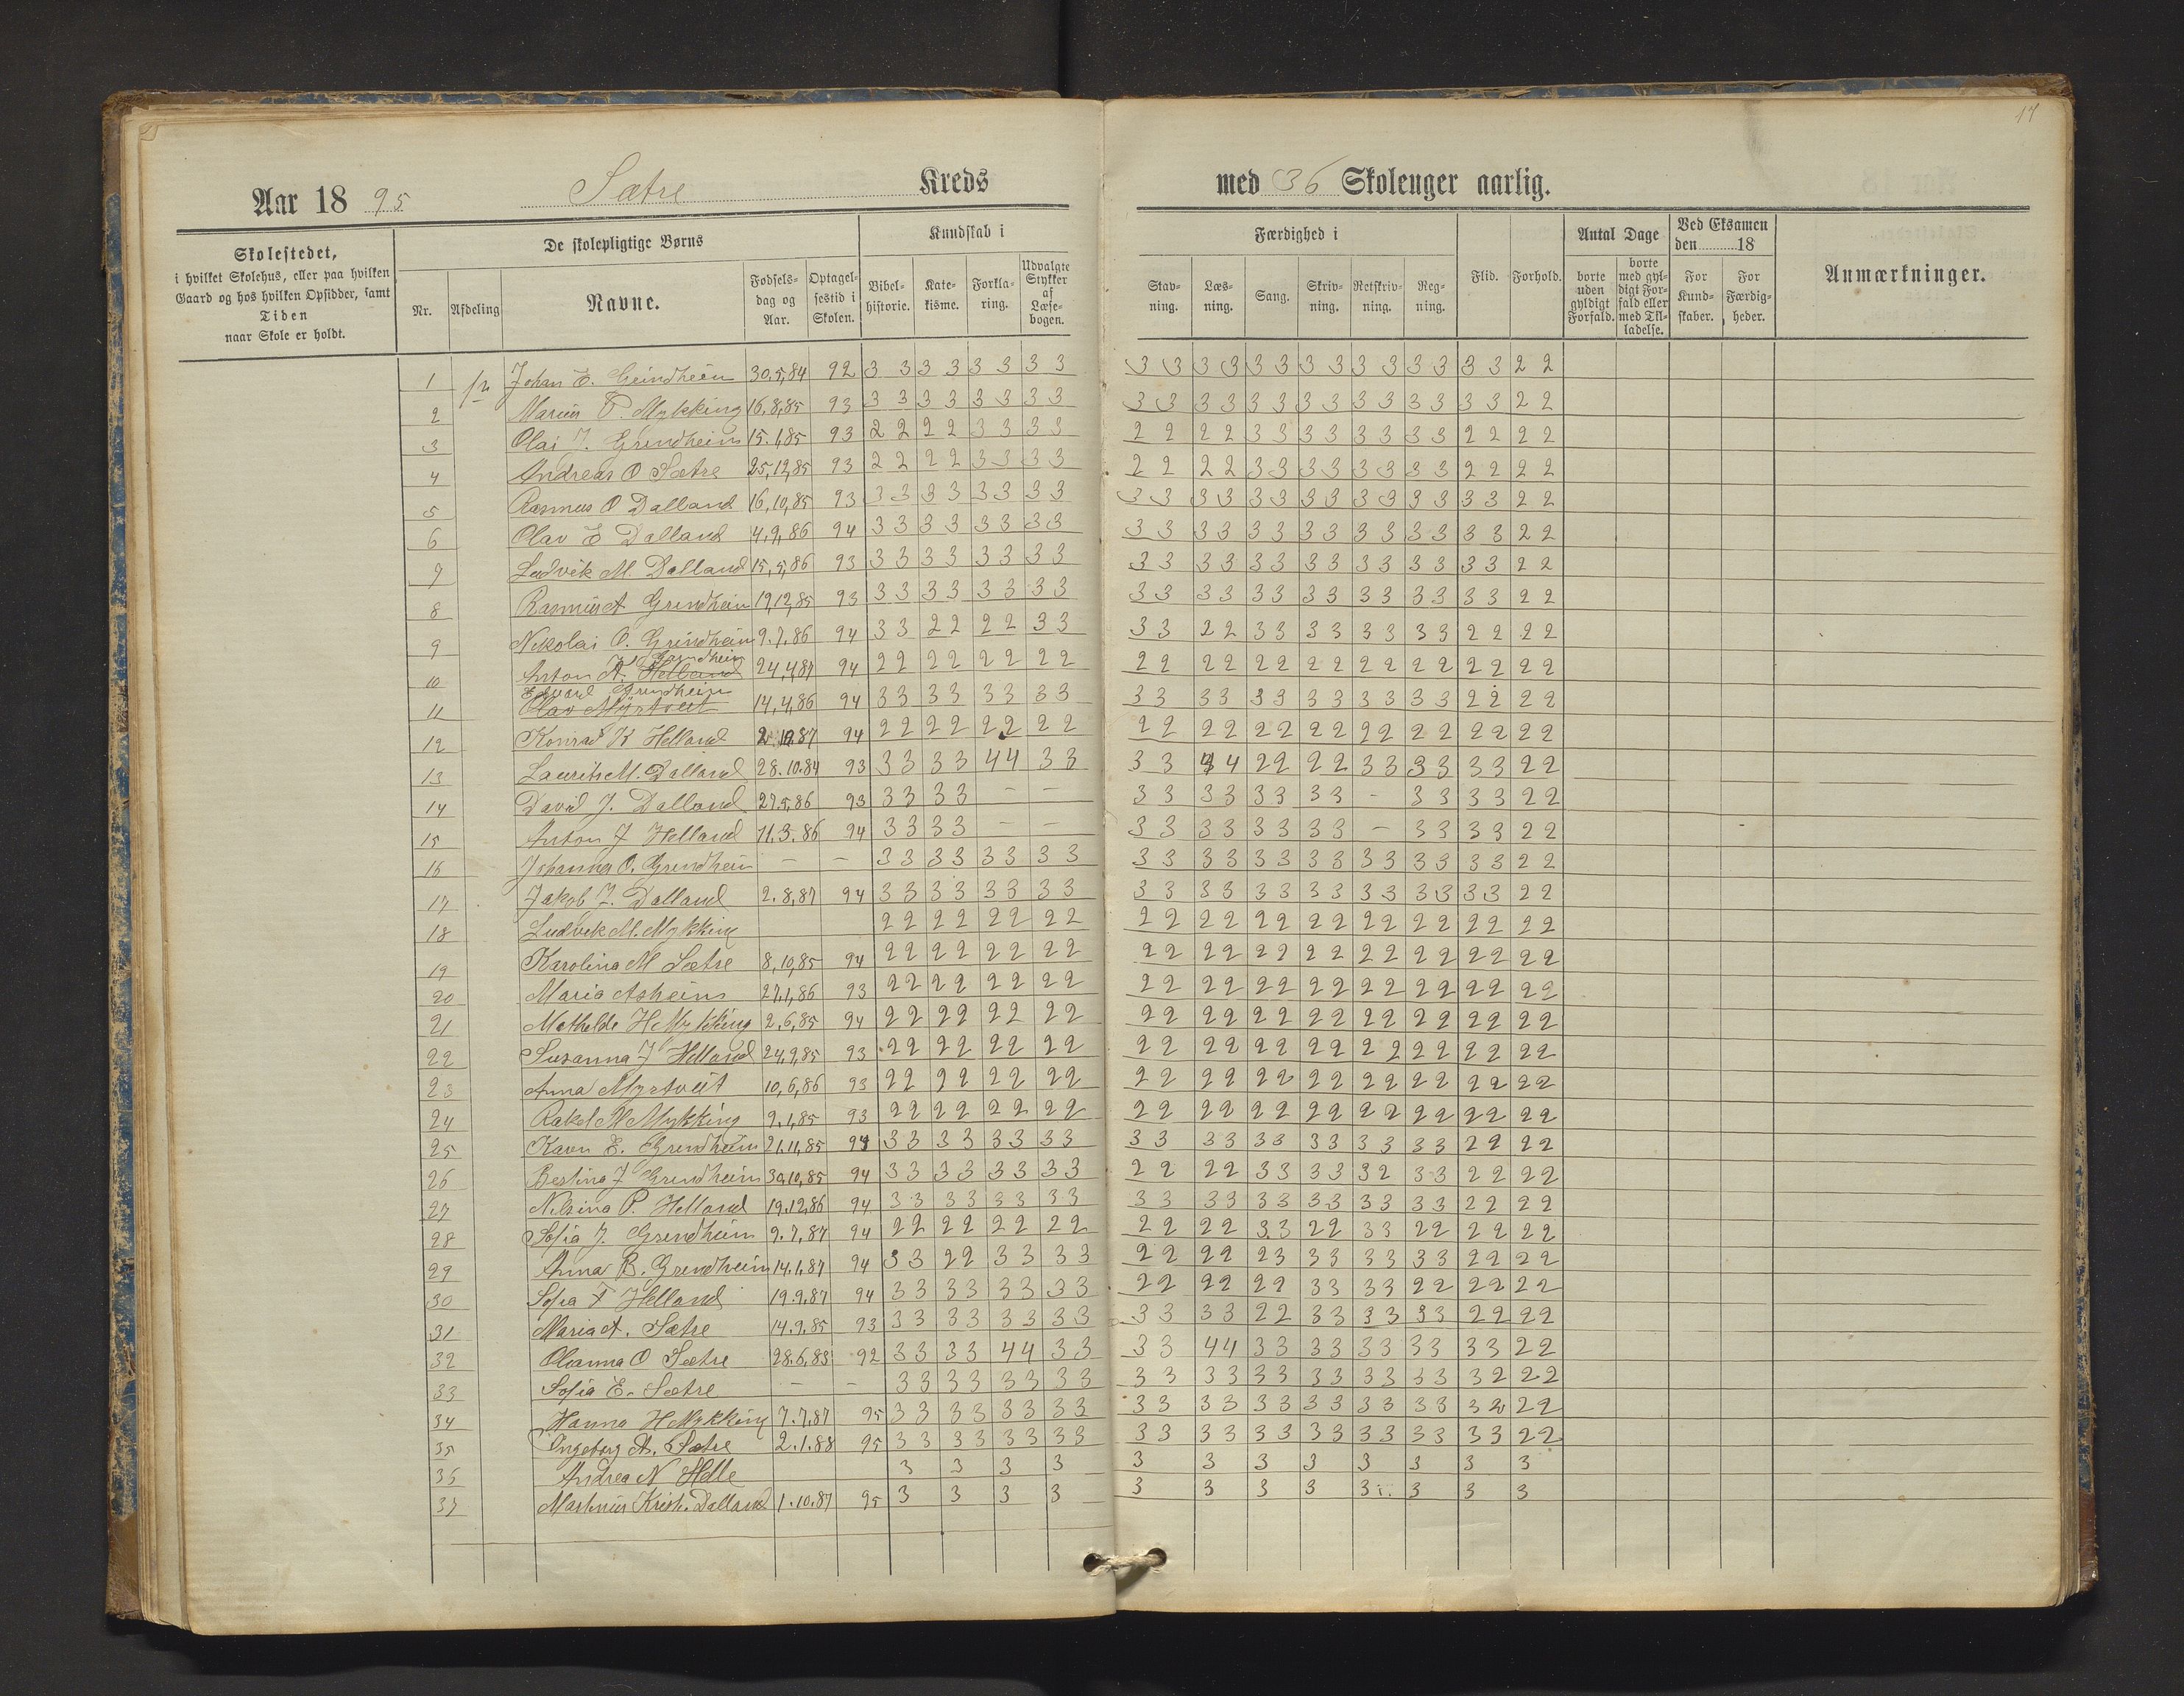 17
Aar 1895 Sætre Kreds med 36 Skoleuger aarlig.
Skolestedet,
i hvilket Skolehus, eller paa hvilken
Gaard og hos hvilken Opsidder, samt
Tiden
naar Skole er holdt.
De skolepligtige Børns
Nr. Afdeling Navne. Fødsels- dag og Aar. Optagel- sestid i Skolen.
Kundskab i
Bibel- historie. Kate- kisme. Forkla- ring. Udvalgte Stykker af Læse- bogen.
Færdighed i
Stav- ning. Læs- ning. Sang. Skriv- ning. Retskriv- ning. Reg- ning.
Flid. Forhold.
Antal Dage
borte uden gyldigt Forfald. borte med gyl- digt For- fald eller med Til- ladelse.
Ved Eksamen den 18
For Kund- skaber. For Færdig- heder.
Anmærkninger.
1 Johan E. Grindheim 30.5,84 92 3 3 3 3 3 3 3 3 3 3 3 3 3 3 3 3 3 3 3 3 3 3 2 2
2 Marius P. Mykking 16,8,85 93 3 3 3 3 3 3 3 3 3 3 3 3 3 3 3 3 3 3 3 3 3 3 2 2
3 Olai J. Grindheim 15.1,85 93 2 2 2 2 3 3 3 3 2 2 2 2 3 3 3 3 3 3 3 3 2 2 2 2
4 Andreas O Sætre 25,12,85 93 2 2 2 2 3 3 3 3 2 2 2 2 3 3 3 3 3 3 3 3 2 2 2 2
5 Rasmus O Dalland 16,10,85 93 3 3 3 3 3 3 3 3 3 3 3 3 3 3 3 3 3 3 3 3 3 3 2 2
6 Olav E Dalland 4,9,86 94 3 3 3 3 3 3 3 3 3 3 3 3 3 3 3 3 3 3 3 3 3 3 2 2
7 Ludvik M. Dalland 15,5,86 93 3 3 3 3 3 3 3 3 3 3 3 3 3 3 3 3 3 3 3 3 3 3 2 2
8 Rasmus A Grindheim 19,12,85 93 3 3 3 3 3 3 3 3 3 3 3 3 3 3 3 3 3 3 3 3 3 3 2 2
9 Nikolai O. Grindheim 9.7.86 94 3 3 2 2 2 2 3 3 3 3 2 2 3 3 3 3 3 3 3 3 2 2 2 2
Grindheim
10 Anton A. Helland 24,4,87 94 2 2 2 2 2 2 2 2 2 2 2 2 2 2 2 2 2 2 2 2 2 2 2 2
Edvard Grindheim
11 Olav Myrtveit 14,4,86 94 3 3 3 3 3 3 3 3 3 3 3 3 3 3 3 3 3 3 3 3 2 2 2 2
12 Konrad K Helland 87 94 2 2 2 2 2 2 2 2 2 2 2 2 2 2 2 2 2 2 2 2 2 2 2 2
13 Laurits M. Dalland 28.10.84 93 3 3 3 3 4 4 3 3 3 3 4 4 2 2 2 2 3 3 3 3 3 3 2 2
14 David J. Dalland 27.5,86 93 3 3 3 3 – – 3 3 3 3 3 3 3 3 – 3 3 3 3 2 2
15 Anton J Helland 11.3.86 94 3 3 3 3 – – 3 3 3 3 3 3 3 3 – 3 3 3 3 2 2
16 Johanna O. Grindheim – – 3 3 3 3 3 3 3 3 3 3 3 3 3 3 3 3 3 3 3 3 3 3 2 2
17 Jakob J. Dalland 2.8,87 94 3 3 3 3 3 3 3 3 3 3 3 3 3 3 3 3 3 3 3 3 3 3 2 2
18 Ludvik M. Mykking 2 2 2 2 2 2 2 2 2 2 2 2 2 2 2 2 2 2 2 2 2 2 2 2
19 Karolina M Sætre 8,10,85 94 2 2 2 2 2 2 2 2 2 2 2 2 2 2 2 2 2 2 2 2 2 2 2 2
20 Maria Asheim 27,1,86 93 2 2 2 2 2 2 2 2 2 2 2 2 2 2 2 2 2 2 2 2 2 2 2 2
21 Mathilde H Mykking 2.6,85 94 2 2 2 2 2 2 2 2 2 2 2 2 2 2 2 2 2 2 2 2 2 2 2 2
22 Susanna J Helland 24,9,85 93 2 2 2 2 2 2 2 2 2 2 2 2 2 2 2 2 2 2 2 2 2 2 2 2
23 Anna Myrtveit 10,6,86 93 2 2 2 2 2 2 2 2 2 2 2 2 2 2 2 2 2 2 2 2 2 2 2 2
24 Rakel M Mykking 9.1,85 93 2 2 2 2 2 2 2 2 2 2 2 2 2 2 2 2 2 2 2 2 2 2 2 2
25 Karn E. Grindheim 21.11,85 94 3 3 3 3 3 3 3 3 3 3 3 3 3 3 3 3 3 3 3 3 2 2 2 2
26 Bertina J Grindheim 30,10,85 94 3 3 3 3 3 3 3 3 2 2 2 2 3 3 3 3 3 2 3 3 2 2 2 2
27 Nilsina P. Helland 19.12,86 94 3 3 3 3 3 3 3 3 3 3 3 3 3 3 3 3 3 3 3 3 2 2 2 2
28 Sofia J. Grindheim 9.7,87 94 2 2 2 2 2 2 2 2 2 2 2 2 3 3 2 2 3 3 2 2 2 2 2 2
29 Anna B. Grindheim 14.1.87 94 3 3 2 2 3 3 3 3 2 2 2 2 2 3 3 3 3 3 3 3 2 2 2 2
30 Sofia T Helland 19.9.87 94 3 3 3 3 3 3 3 3 2 2 2 2 2 2 3 3 3 3 2 2 2 2 2 2
31 Maria A. Sætre 14.9.85 93 3 3 3 3 3 3 3 3 3 3 3 3 2 2 3 3 3 3 3 3 2 2 2 2
32 Olianna O Sætre 28.6,83 92 3 3 3 3 4 4 3 3 3 3 4 4 3 3 3 3 3 3 3 3 3 3 2 2
33 Sofia E. Sætre – – 3 3 3 3 3 3 3 3 3 3 3 3 3 3 3 3 3 3 3 3 3 2 2 2
34 Hanna H Mykking 7.7,87 95 3 3 3 3 3 3 3 3 3 3 3 3 3 3 3 3 3 3 3 3 3 2 2 2
35 Ingeborg A. Sætre 2.1.88 95 3 3 3 3 3 3 3 3 3 3 3 3 3 3 3 3 3 3 3 3 3 3 2 2
36 Andrea N Helle 3 3 3 3 3 3 3 3 3 3 3 3
37 Martinus Krist. Dalland 1.10.87 95 3 3 3 3 3 3 3 3 3 3 3 3